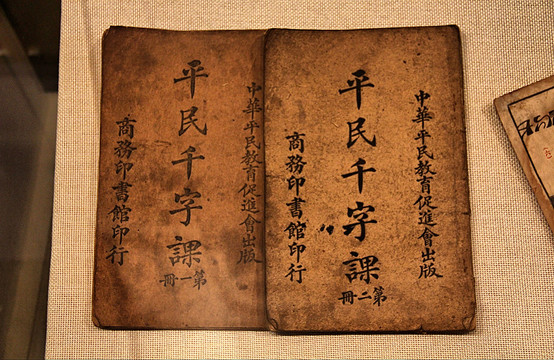 中華平民教育促進會出版
平民千字課
第一冊
商務印書館印行
中華平民教育促進會出版
平民千字課
第二冊
商務印書館印行